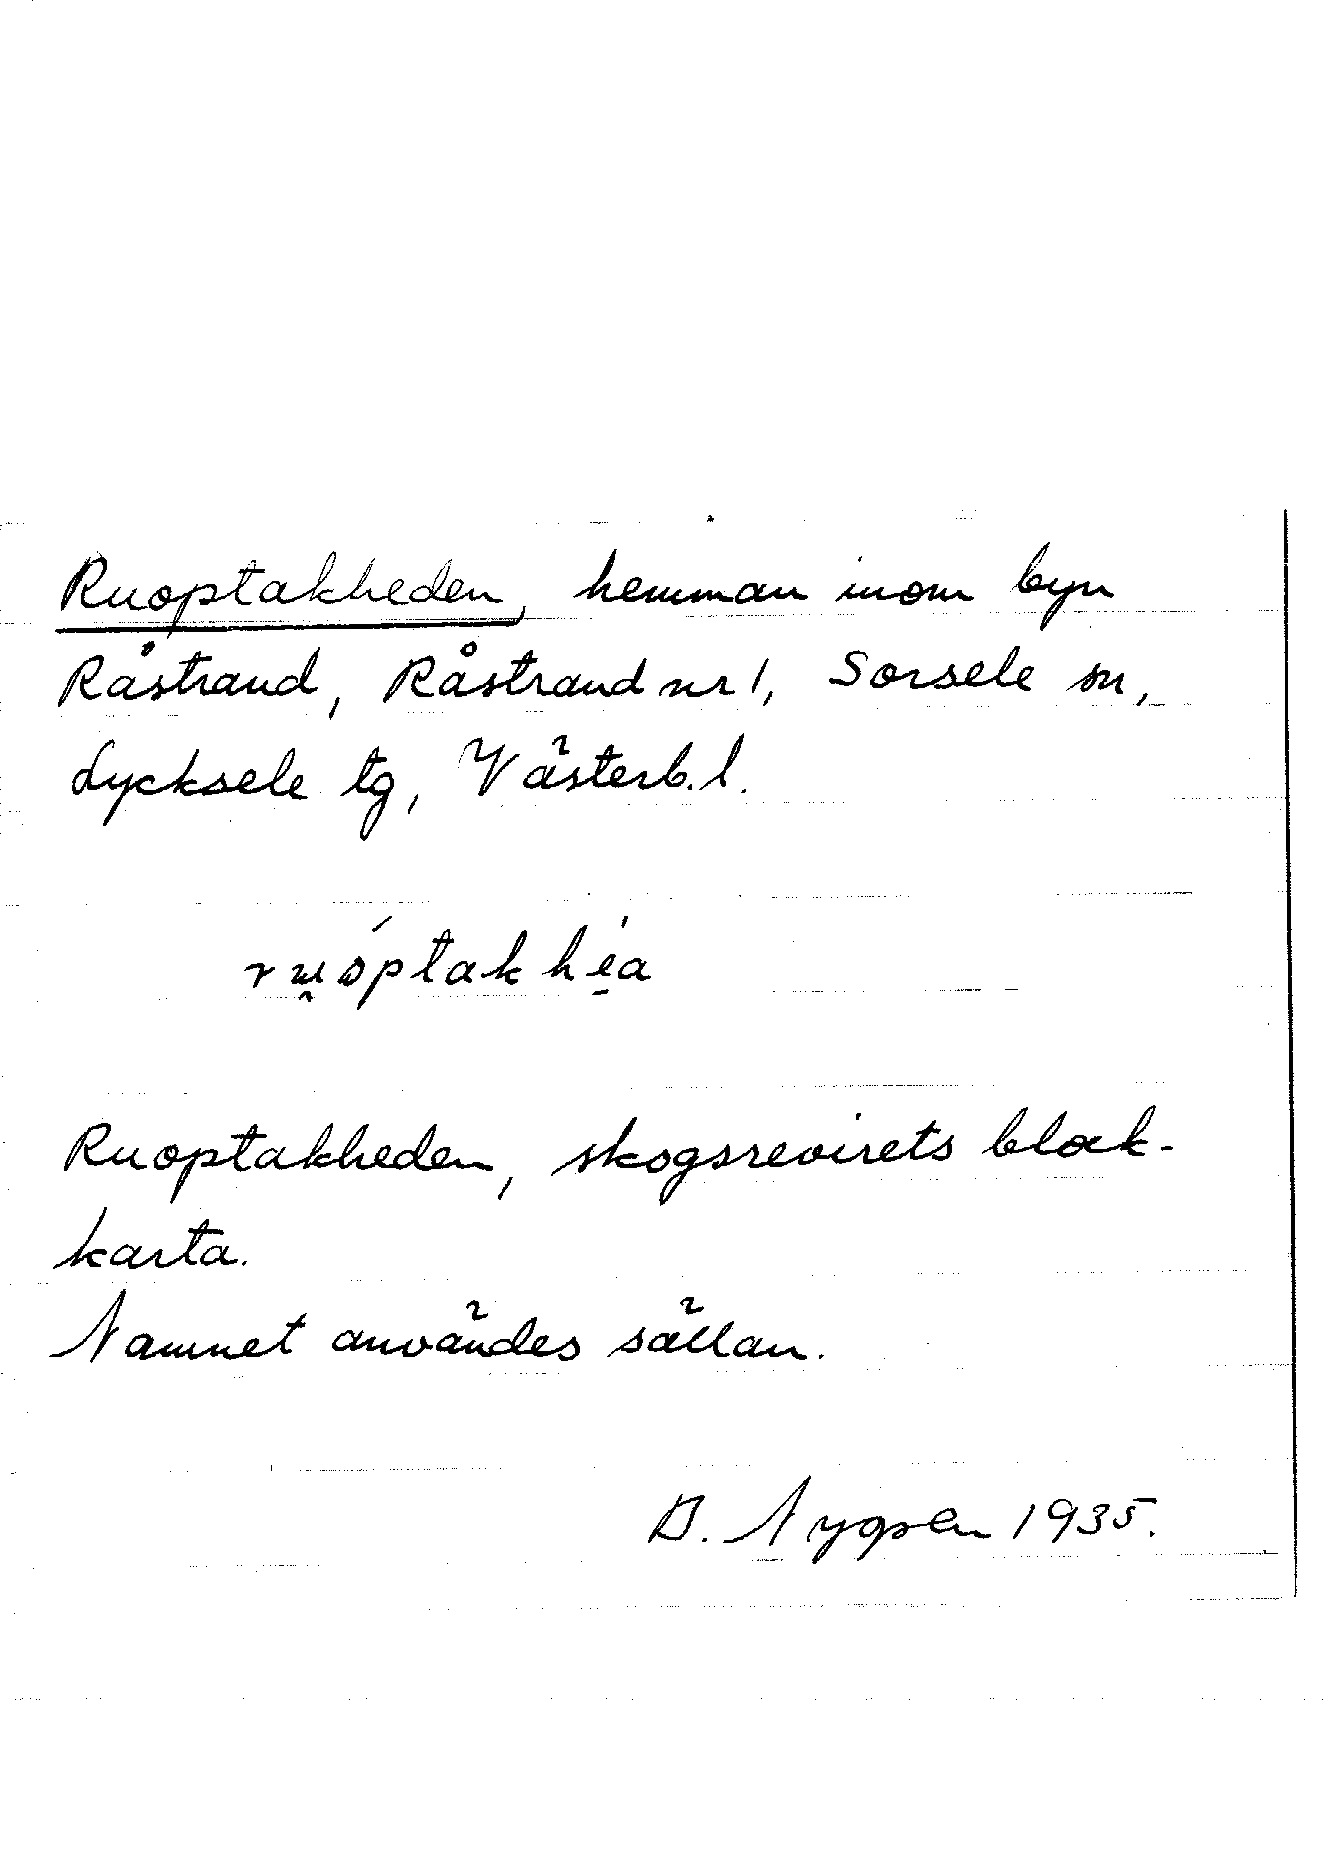 Ruoptakheden, hemman inom byn
Råstrand, Råstrand nr 1, Sorsele sn,
Lycksele tg, Västerb. l.
Ruoptakheden, skogsrevirets block-
karta.
Namnet användes sällan.
B. 1935.